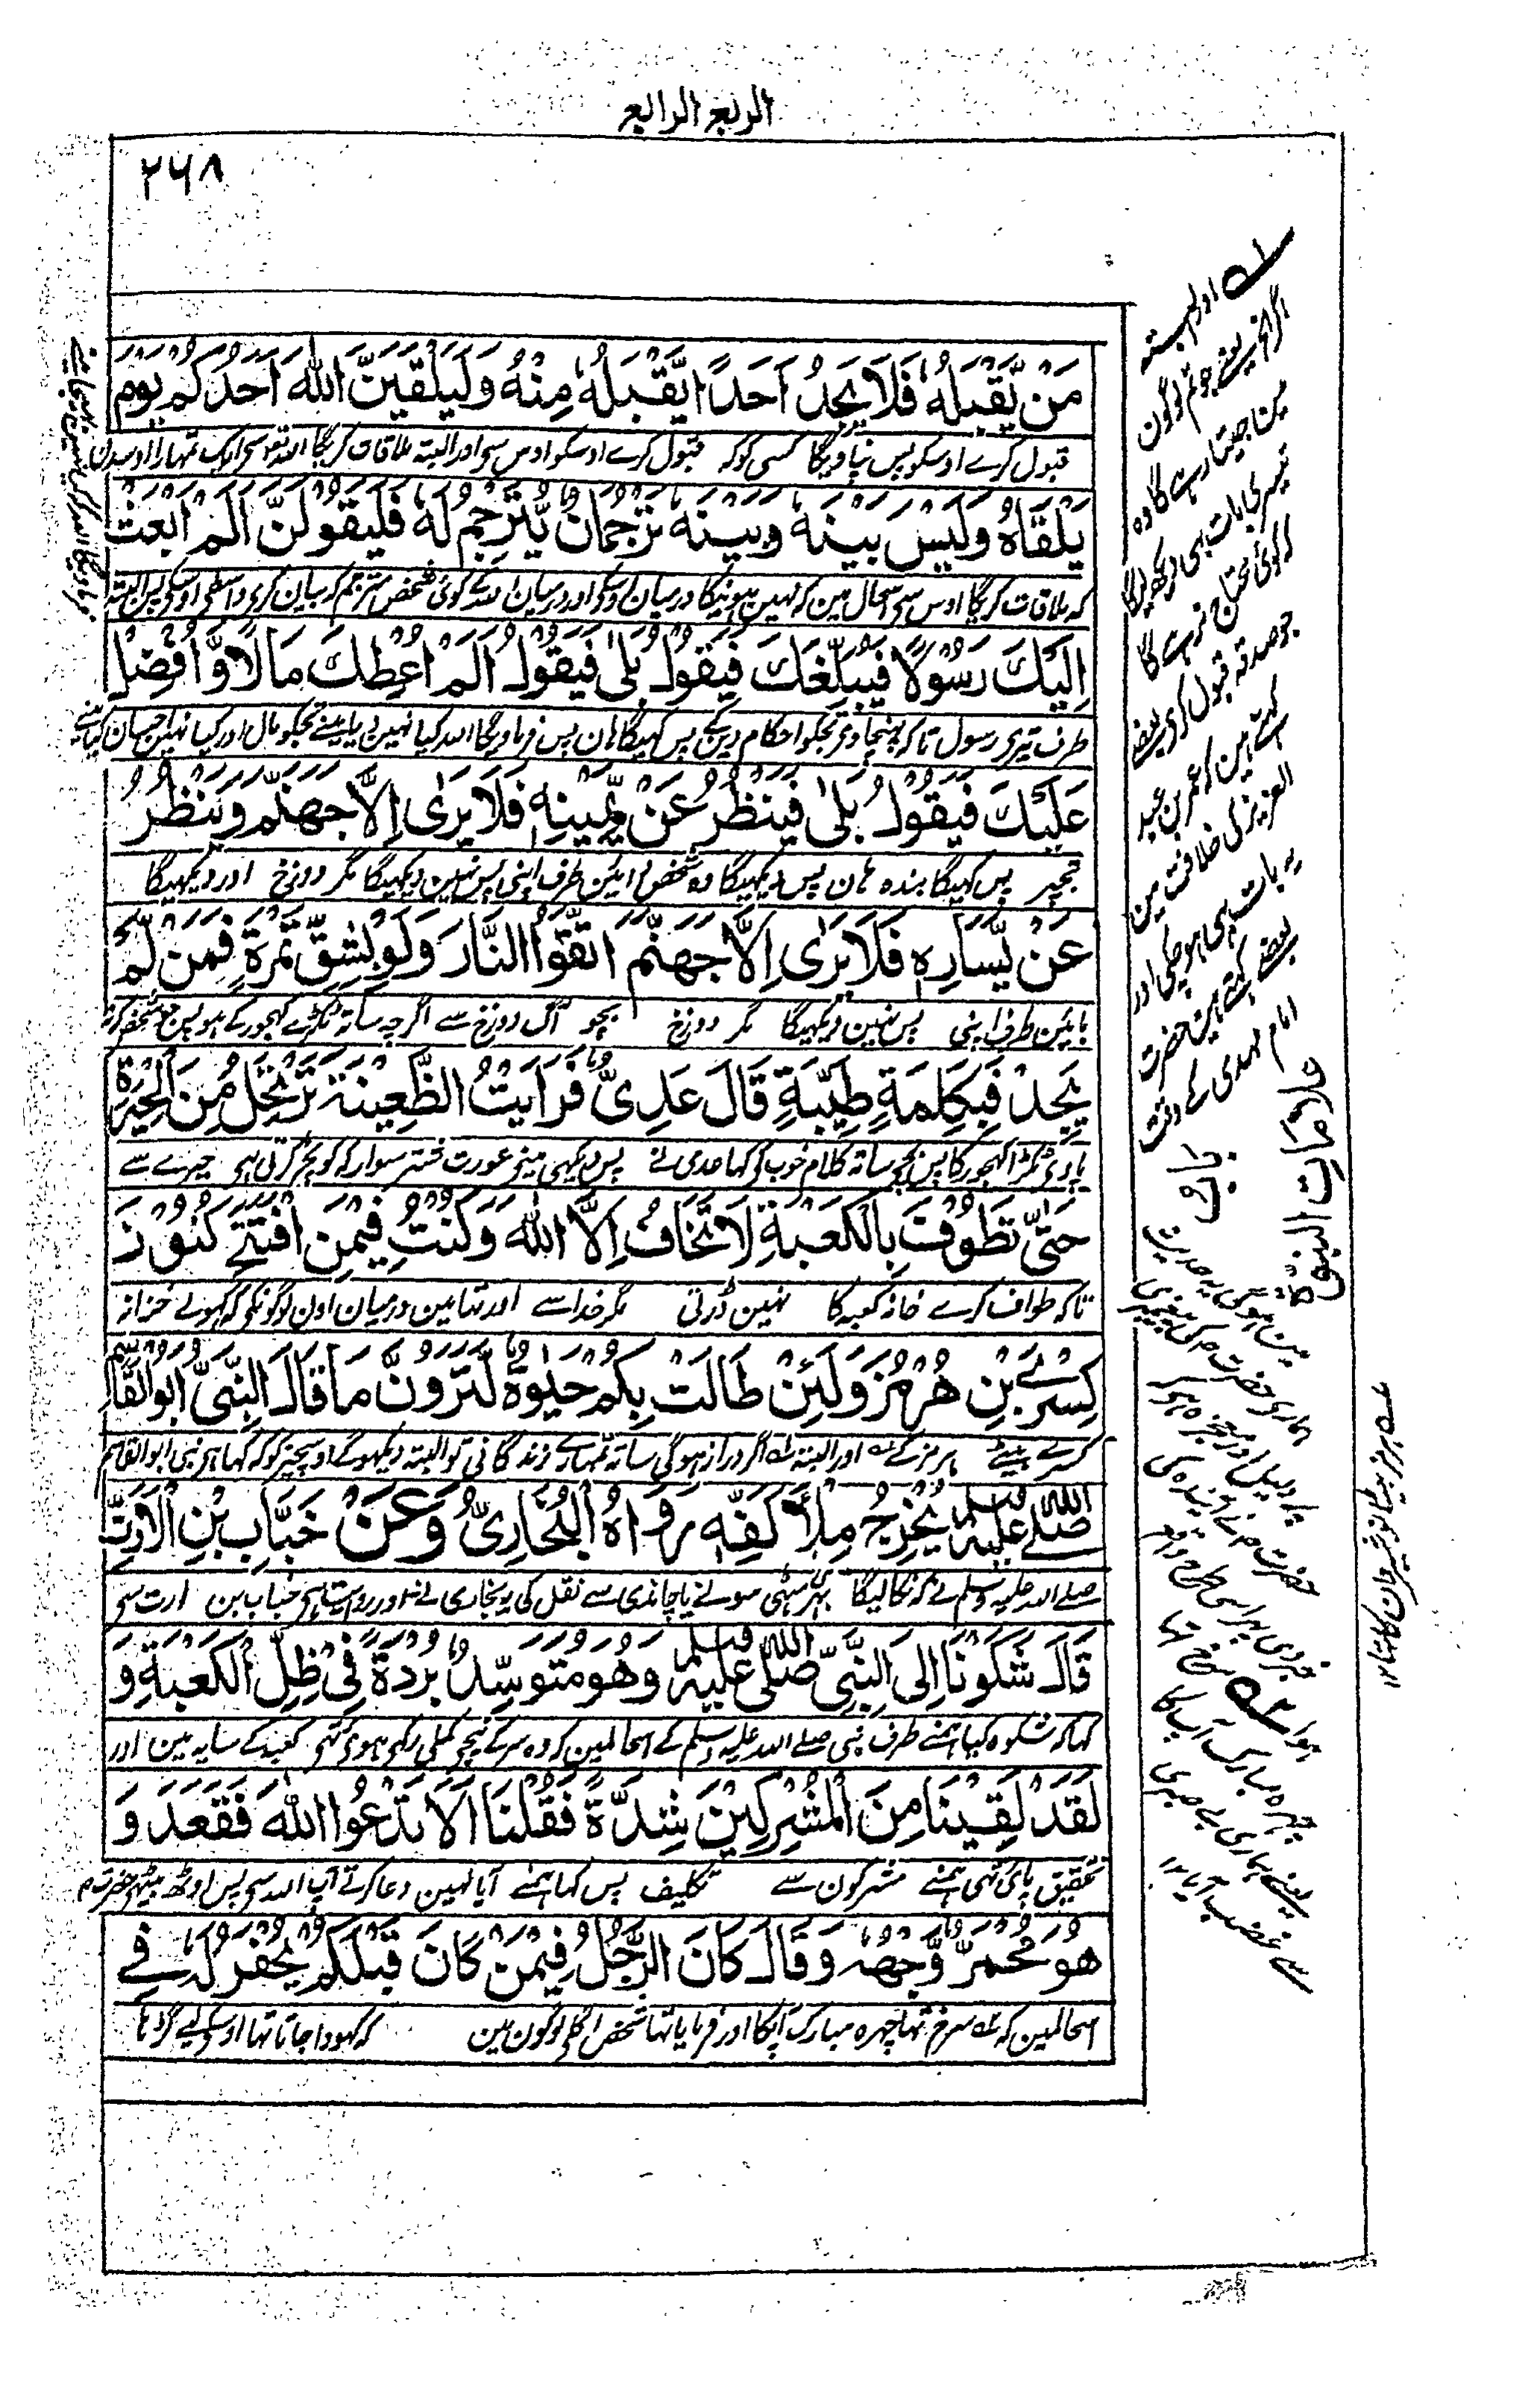 الربع الرابع
۲۶۸
مَنْ يَّقْبَلُهٗ فَلَا يَجِدُ اَحَدًا يَّقْبَلُهٗ مِنْهُ وَلَيَلْقَيَنَّ اللّٰهَ اَحَدُكُمْ يَوْمَ
قبول کرے اوسکو پس نپاویگا کسی کو کہ قبول کرے اوسکو اوس سی اور البتہ ملاقات کریگا اللہ تعالی سی ایک تمہارا اوسدن
يَلْقَاهُ وَلَيْسَ بَيْنَهٗ وَبَيْنَهٗ تَرْجُمَانٌ يُّتَرْجِمُ لَهٗ فَلَيَقُوْلَنَّ اَلَمْ اَبْعَثْ
کہ ملاقات کریگا اوس سی اسحال مین کہ نہین ہوئیگا درمیان اوسکی اور درمیان اللہ کے کوئی شخص مترجم کہ بیان کری واسطی اوسکی پس البتہ
اِلَيْكَ رَسُوْلًا فَيُبَلِّغَكَ فَيَقُوْلُ بَلٰى فَيَقُوْلُ اَلَمْ اُعْطِكَ مَالًا وَّاُفْضِلْ
طرف تیری رسول تاکہ پہنچاوی تجکو احکام دین کے پس کہیگا ہان پس فرماویگا اللہ کیا نہین دیا مینے تجکو مال اور کیا نہین احسان کیا مینے
عَلَيْكَ فَيَقُوْلُ بَلٰى فَيَنْظُرُ عَنْ يَّمِيْنِهٖ فَلَا يَرٰى اِلَّا جَهَنَّمَ وَيَنْظُرُ
تجہپر پس کہیگا بندہ ہان پس دیکہیگا وہ شخص دائین طرف اپنی پس نہین دیکہیگا مگر دوزخ اور دیکہیگا
عَنْ يَّسَارِهٖ فَلَا يَرٰى اِلَّا جَهَنَّمَ اِتَّقُوا النَّارَ وَلَوْ بِشِقِّ تَمْرَةٍ فَمَنْ لَّمْ
بائین طرف اپنی پس نہین دیکہیگا مگر دوزخ بچو آگ دوزخ سے اگرچہ ساتہ ٹکڑے کہجور کے ہو پس جو شخص کہ نہ
يَجِدْ فَبِكَلِمَةٍ طَيِّبَةٍ قَالَ عَدِىٌّ فَرَاَيْتُ الظَّعِيْنَةَ تَرْتَحِلُ مِنَ الْحِيْرَةِ
پاوی ٹکڑا کہجور کا پس بچو ساتہ کلام خوب کی کہا عدی نے پس دیکہی مینے عورت شتر سوار کہ کوچ کرتی ہی حیرے سے
حَتّٰى تَطُوْفَ بِالْكَعْبَةِ لَا تَخَافُ اِلَّا اللّٰهَ وَكُنْتُ فِيْمَنِ افْتَتَحَ كُنُوْزَ
تاکہ طواف کرے خانہ کعبہ کا نہین ڈرتی مگر خدا سے اور تہا مین درمیان اون لوگونکی کہ کہولے خزانہ
كِسْرٰى بْنِ هُرْمُزَ وَلَئِنْ طَالَتْ بِكُمْ حَيٰوةٌ لَتَرَوُنَّ مَا قَالَ النَّبِىُّ اَبُو الْقَاسِمِ
کسرے بیٹے ہرمز کے اور البتہ اگر دراز ہوگی ساتہ تمہارے زندگانی تو البتہ دیکہوگے اوسچیز کو کہ کہا ہی نبی ابوالقاسم
صَلَّى اللّٰهُ عَلَيْهِ وَسَلَّمَ يُخْرِجُ مِلْأَ كَفِّهٖ رَوَاهُ الْبُخَارِىُّ وَعَنْ خَبَّابِ بْنِ الْاَرَتِّ
صلے اللہ علیہ وسلم نے کہ نکالیگا بہر مٹہی سونے یا چاندی سے نقل کی یہ بخاری نے اور روایت ہی خباب بن ارت سی
قَالَ شَكَوْنَا اِلَى النَّبِىِّ صَلَّى اللّٰهُ عَلَيْهِ وَسَلَّمَ وَهُوَ مُتَوَسِّدٌ بُرْدَةً فِىْ ظِلِّ الْكَعْبَةِ وَ
کہا کہ شکوہ کیا ہمنے طرف نبی صلے اللہ علیہ وسلم کے اسحالمین کہ وہ سر کے نیچے کملی رکہی ہوئی تہی کعبہ کے سایہ مین اور
لَقَدْ لَقِيْنَا مِنَ الْمُشْرِكِيْنَ شِدَّةً فَقُلْنَا اَلَا تَدْعُوا اللّٰهَ فَقَعَدَ وَ
تحقیق پائی تہی ہمنے مشرکون سے تکلیف پس کہا ہمنے آیا نہین دعا کرتے آپ اللہ سی پس اوٹھ بیٹہے حضرت
هُوَ مُحْمَرٌّ وَّجْهُهٗ وَقَالَ كَانَ الرَّجُلُ فِيْمَنْ كَانَ قَبْلَكُمْ يُحْفَرُ لَهٗ فِے
اسحالمین کہ سرخ تہا چہرہ مبارک آپکا اور فرمایا تہا شخص اگلی لوگون مین کہ کہودا جاتا تہا اوسکے لیے گڑہا
البتہ
اگر
یعنے جو تم لوگون
مین جیتا رہے گا وہ
تیسری بات بہی دیکھ لیگا
کہ کوئی محتاج نرہے گا
جو صدقہ قبول کری بعضے
کہتے ہین کہ عمر بن عبد
العزیز کی خلافت مین
یہ بات بہی ہو چکی اور
بعضے کہتے ہین حضرت
امام مہدی کے وقت
باب
علامات النبوة
مین ہوگی یہ حدیث
حضرت کی پیغمبری
چہرہ مبارک آپ کا
یعنے ہماری بے صبری
سے غضب آیا ۱۲
ہرمز بیٹا نوشیروان کا تہا ۱۲